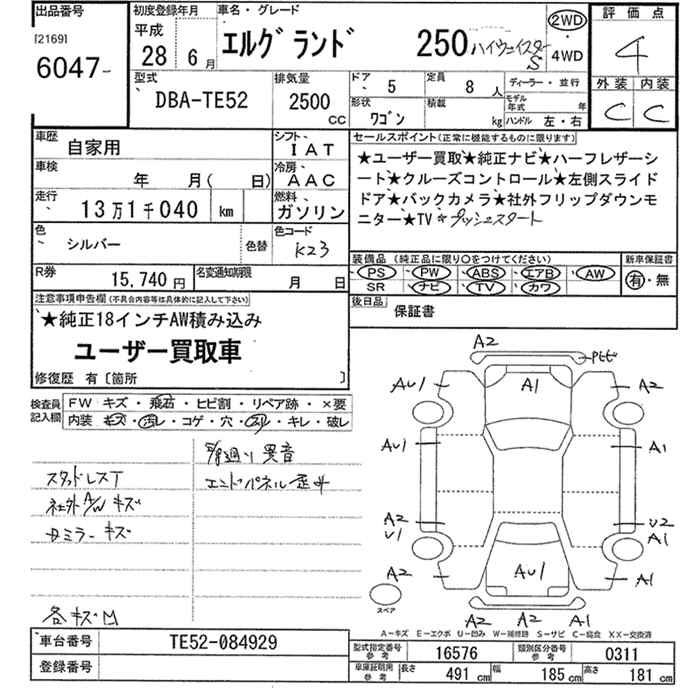 出品番号 初度登録年月 車名・グレード 評価点
[2169] 平成 2WD
6047 28年 6月 エルグランド 250 ハイウェイスター S 4WD 4
型式 排気量 ドア 定員 ディーラー・並行 外装 内装
DBA-TE52 2500 CC 5 8人 モデル年式 年 C C
形状 積載
ワゴン kg ハンドル 左・右
車歴 自家用 シフト IAT セールスポイント(正常に機能するものに限ります)
車検 年 月( 日) 冷房 AAC
★ユーザー買取★純正ナビ★ハーフレザーシ
ート★クルーズコントロール★左側スライド
ドア★バックカメラ★社外フリップダウンモ
ニター★TV☆プッシュスタート
走行 13万1千040 km 燃料 ガソリン
色 シルバー 色替 色コード K23
装備品(純正品に限り○をつけてください) 新車保証書
PS PW ABS エアB AW 有・無
SR ナビ TV カワ
R券 15,740円 名変通知期限 月 日
後日品 保証書
注意事項申告欄(不具合内容等は具体的に記入して下さい)
★純正18インチAW積み込み
ユーザー買取車
修復歴 有〔箇所 〕
検査員記入欄 FW キズ・飛石・ヒビ割・リペア跡・×要
内装 キズ・汚レ・コゲ・穴・スレ・キレ・破レ
廻り異音
スタッドレスT エンドパネル歪み
社外A/W キズ
ミラー キズ
各キズM
A2
AU1 A1 A2
AU1 A1
A2 U2
U1 A1
A2 AU1 A1
A2 A2 A1
スペア
A-キズ E-エクボ U-凹み W-補修跡 S-サビ C-腐食 XX-交換済
車台番号 TE52-084929
登録番号
型式指定番号 参考 16576 類別区分番号 参考 0311
車庫証明用 参考 長さ 491cm 幅 185cm 高さ 181cm